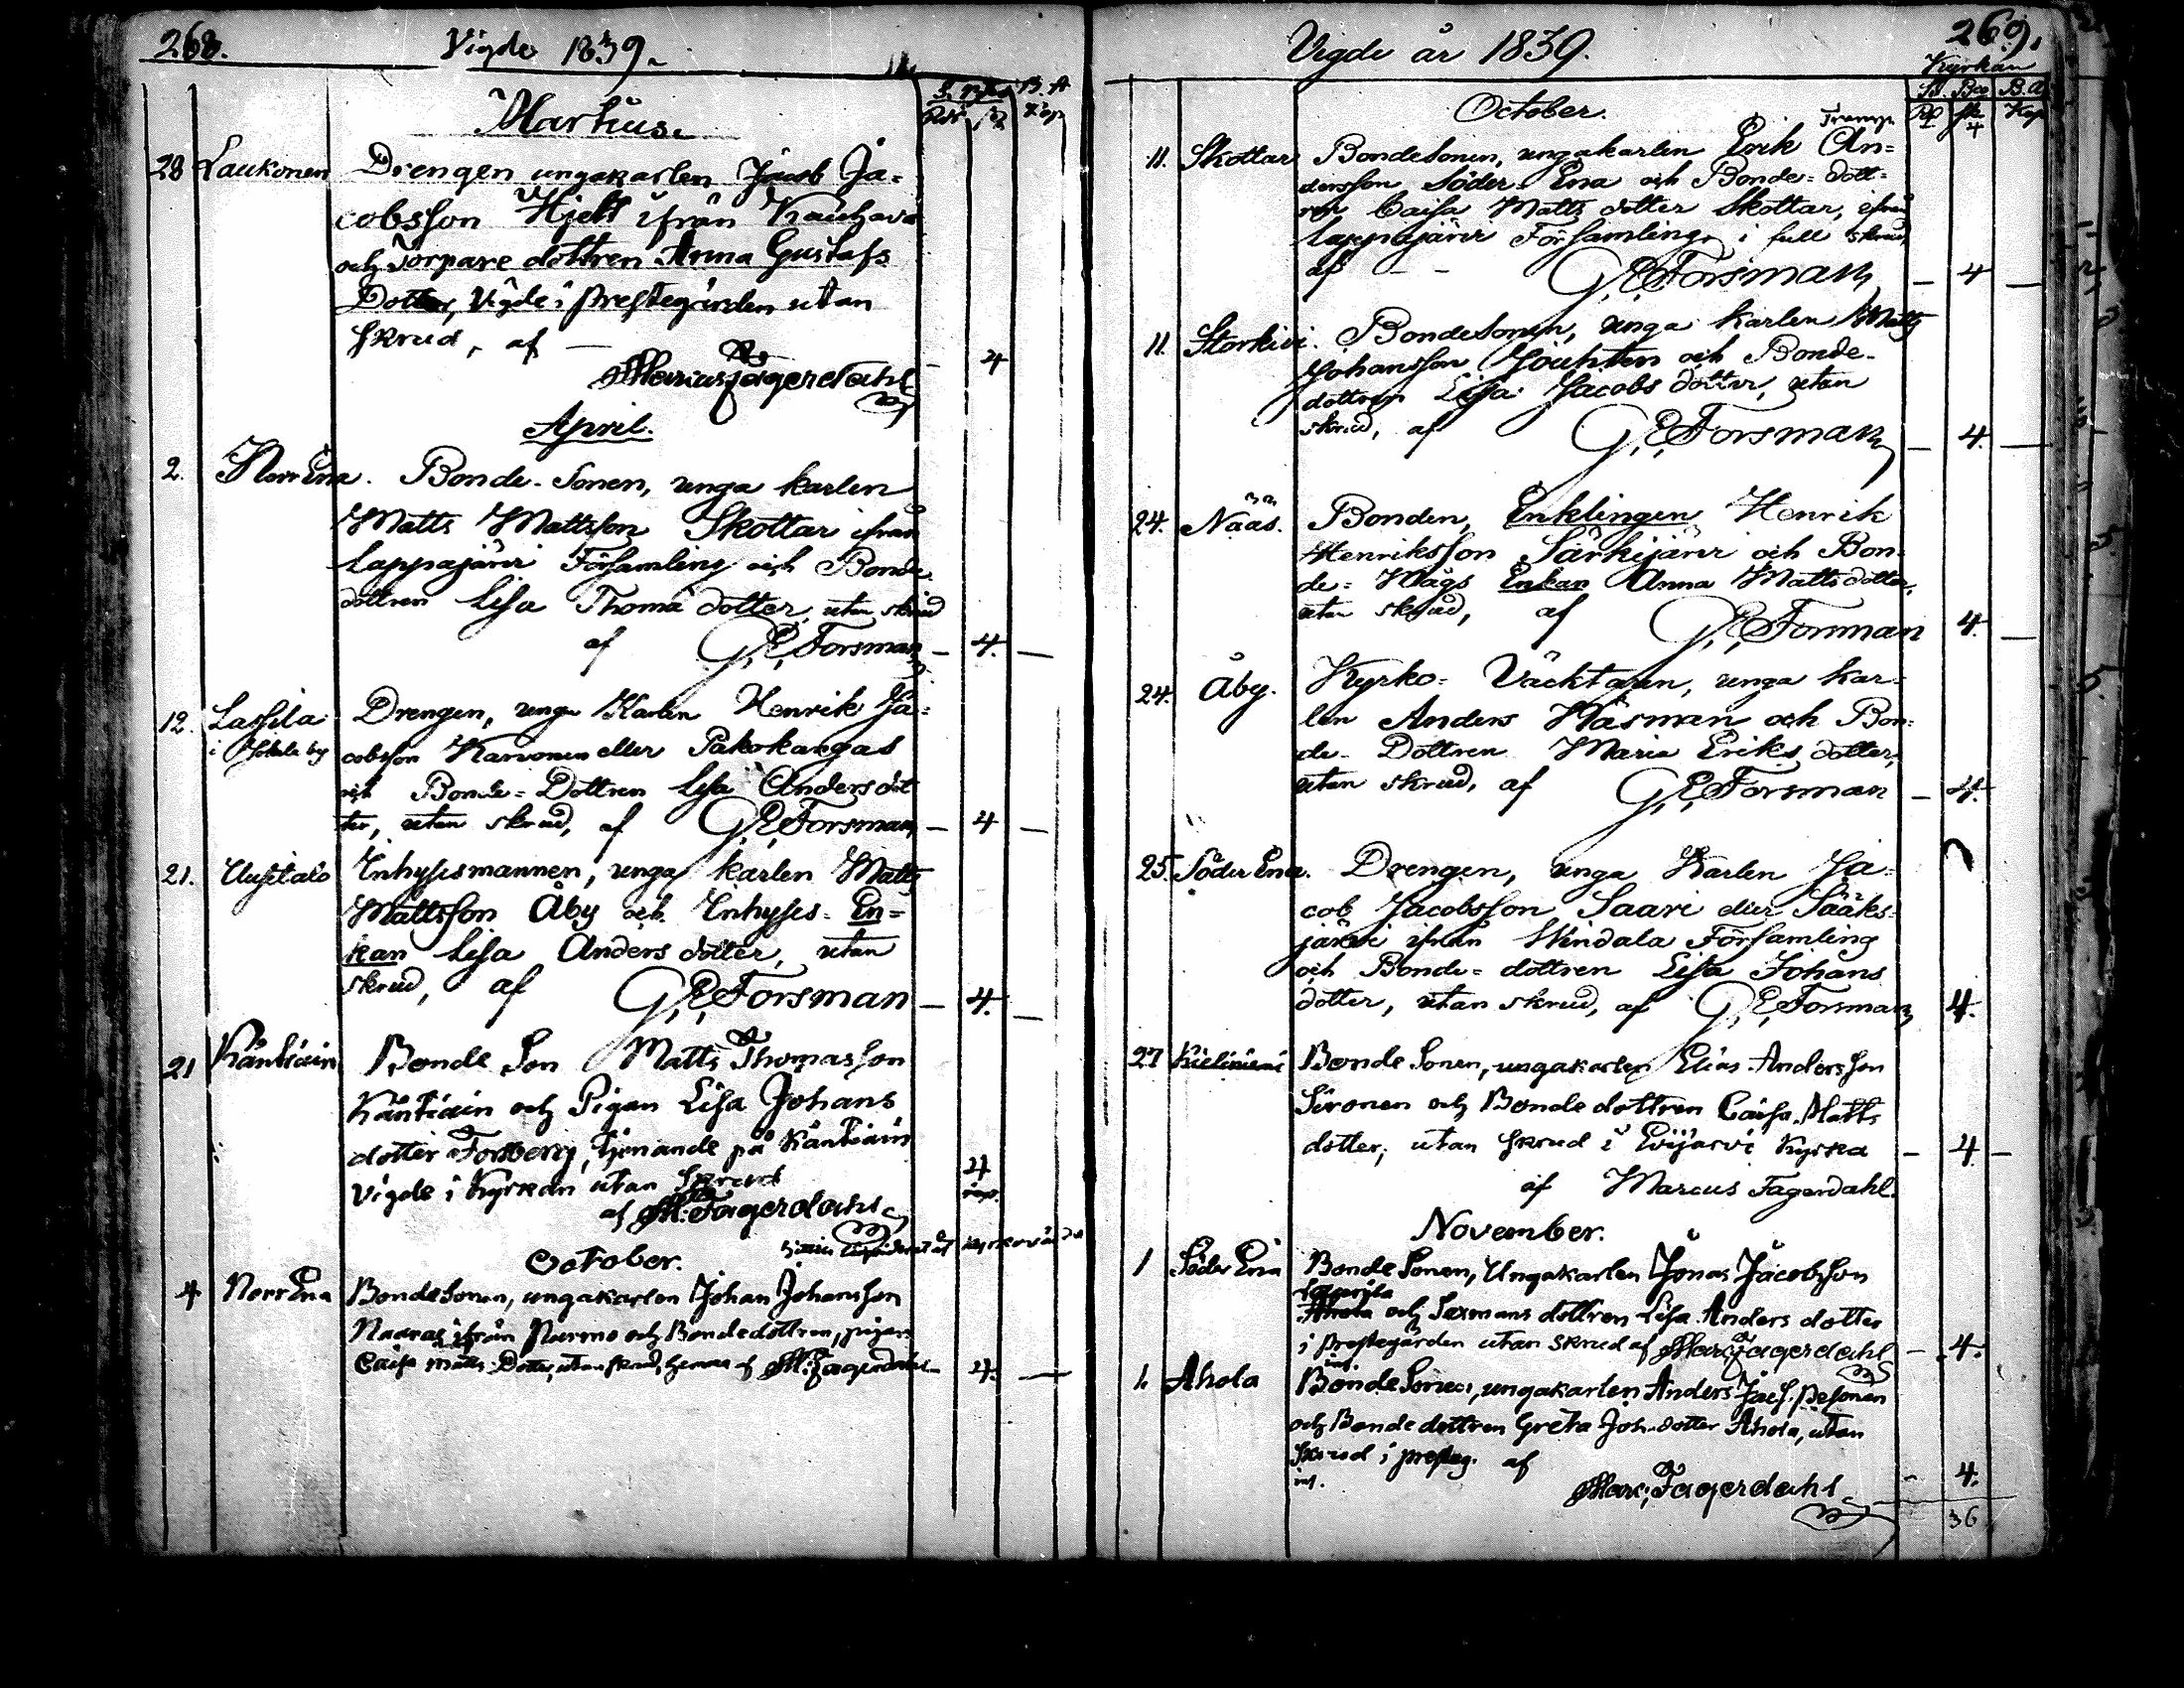 268.
Vigde 1839.
Martius.
28 Laukonen Drengen ungakarlen Jacob Ja=
cobsson Hjelt ifrån Kauhava
och Torpare dottren Anna Gustafs
Dotter, Vigde i prestegården utan
skrud, af —
Marcus Fagerdahl - 4
April.
2. Norr Ena. Bonde-Sonen, unga karlen
Matts Mattsson Skottar ifrån
Lappajärvi Församling och Bonde
dottren Lisa Thomæ dotter, utan skrud
af G,E,Forsman — 4. —
12. Lassila Drengen, unga Karlen Henrik Ja=
i by cobsson Karvonen eller Pakokangas
och Bonde=Dottren Lisa Anders dot
ter, utan skrud, af G,E,Forsman — 4 —
21. Uusitalo Inhysesmannen, unga karlen Matts
Mattsson Åby och Inhyses-En=
kan Lisa Anders dotter, utan
skrud, af G,E,Forsman — 4. —
21 Käntiäin Bonde Son Matts Thomasson
Käntiäin och Pigan Lisa Johans
dotter Forsberg, tjenande på Käntiäin
Vigde i Kyrkan utan skrud 4
af M. Fagerdahl
October.
4 Norr Ena BondeSonen, ungakarlen Johan Johansson
Naaras ifrån Purmo och Bondedottren, pigan
Caisa Matts Dotter, utan skrud, hemma af M. Fagerdahl — 4. —
Vigde år 1839.
269.
Kyrkan
October.
11. Skottar BondeSonen, ungakarlen Erik An=
dersson Söder Ena och Bonde=dott=
ren Caisa Matts dotter Skottar, ifrån
Lappajärvi Församling, i full skrud,
af - - G,E,Forsman — 4 —
11. Storkivi. BondeSonen, unga karlen Matts
Johansson Jouhten och Bonde-
dottren Lisa Jacobs dotter, utan
skrud, af G,E,Forsman — 4. —
24. Nääs. Bonden, Enklingen Henrik
Henriksson Särkijärvi och Bon
de= Mågs Enkan Anna Mattsdotter,
utan skrud, af G,E,Forsman 4. —
24. Åby. Kyrko=Väcktaren, unga kar=
len Anders Wäsman och Bon=
de-Dottren Maria Eriks dotter,
utan skrud, af G,E,Forsman — 4.
25. Söder Ena. Drengen, unga Karlen Ja=
cob Jacobsson Saari eller Sääks=
järvi ifrån Windala Församling
och Bonde=dottren Lisa Johans
dotter, utan skrud, af G,E,Forsman 4.
27 Kieliniemi Bonde Sonen, ungakarlen Elias Andersson
Sironen och Bonde dottren Caisa Matts
dotter, utan skrud i Evijärvi Kyrka — 4. —
af Marcus Fagerdahl.
November.
1 Söder Ena Bonde Sonen, Ungakarlen Jonas Jacobsson
och Sexmans dottren Lisa Anders dotter
i prestegården utan skrud af Marc. Fagerdahl — 4.
1. Ahola BondeSonen, ungakarlen Anders Jacs. Pesonen
och Bonde dottren Greta Joh. dotter Ahola, utan
skrud i presteg. af
Marc. Fagerdahl - 4.
36